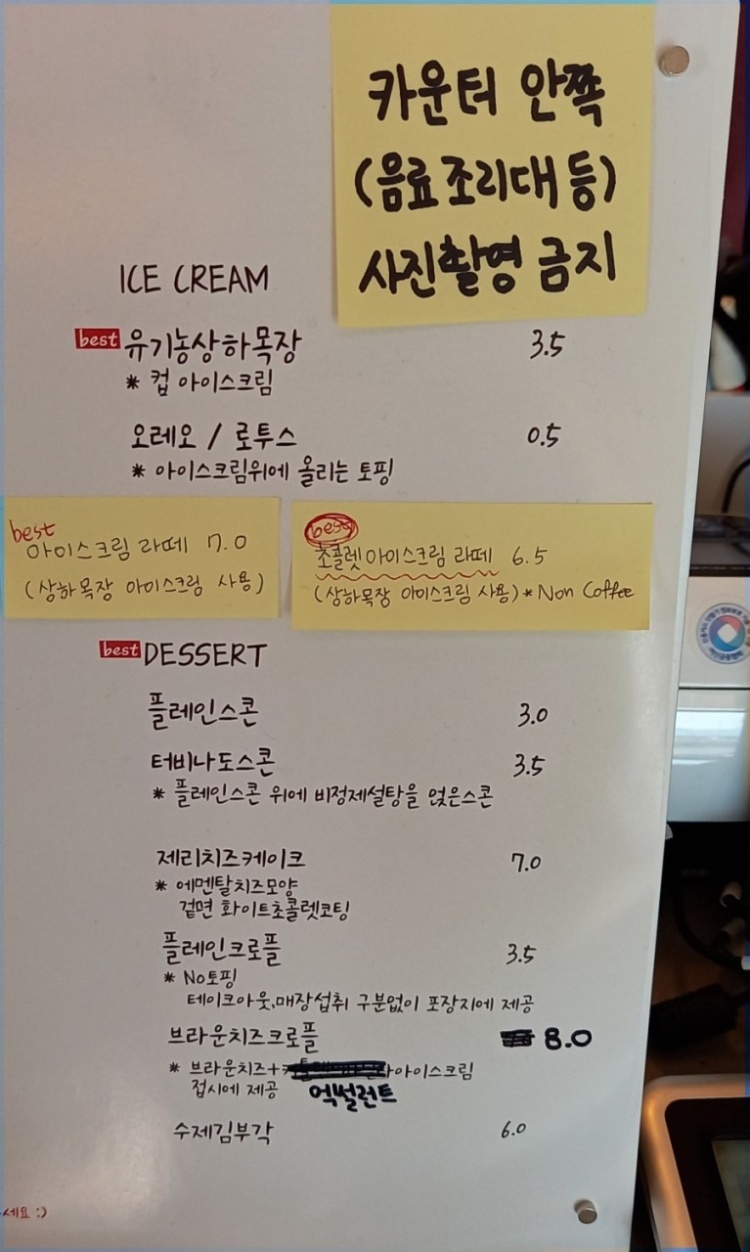 카운터 안쪽
(음료조리대 등)
사진촬영 금지
ICE CREAM
best 유기농상하목장 3.5
* 컵 아이스크림
오레오 / 로투스 0.5
* 아이스크림위에 올리는 토핑
best
아이스크림 라떼 7.0
(상하목장 아이스크림 사용)
best
초콜렛아이스크림 라떼 6.5
(상하목장 아이스크림 사용)* Non Coffee
best DESSERT
플레인스콘 3.0
터비나도스콘 3.5
* 플레인스콘 위에 비정제설탕을 얹은스콘
제리치즈케이크 7.0
* 에멘탈치즈모양
겉면 화이트초콜렛코팅
플레인크로플 3.5
* No토핑
테이크아웃,매장섭취 구분없이 포장지에 제공
브라운치즈크로플 8.0
* 브라운치즈+아이스크림
접시에 제공 엑썰런트
수제김부각 6.0
세요 :)